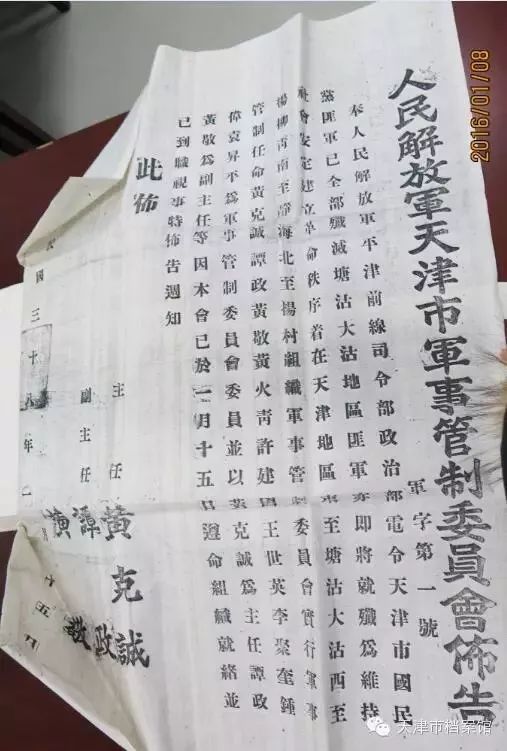 人民解放軍天津市軍事管制委員會佈告
軍字第一號
奉人民解放軍平津前線司令部政治部電令天津市國民
黨匪軍已全部殲滅塘沽大沽地區匪軍亦即將就殲爲維持
社會安定建立革命秩序着在天津地區東至塘沽大沽西至
楊柳青南至靜海北至楊村組織軍事管制委員會實行軍事
管制任命黃克誠譚政黃敬黃火青許建國王世英李聚奎鍾
偉袁昇平爲軍事管制委員會委員並以黃克誠爲主任譚政
黃敬爲副主任等因本會已於一月十五日遵命組織就緒並
已到職視事特佈告週知
此佈
主任 黃克誠
副主任 譚政
黃敬
民國三十八年一月十五日
2016/01/08
天津市档案馆